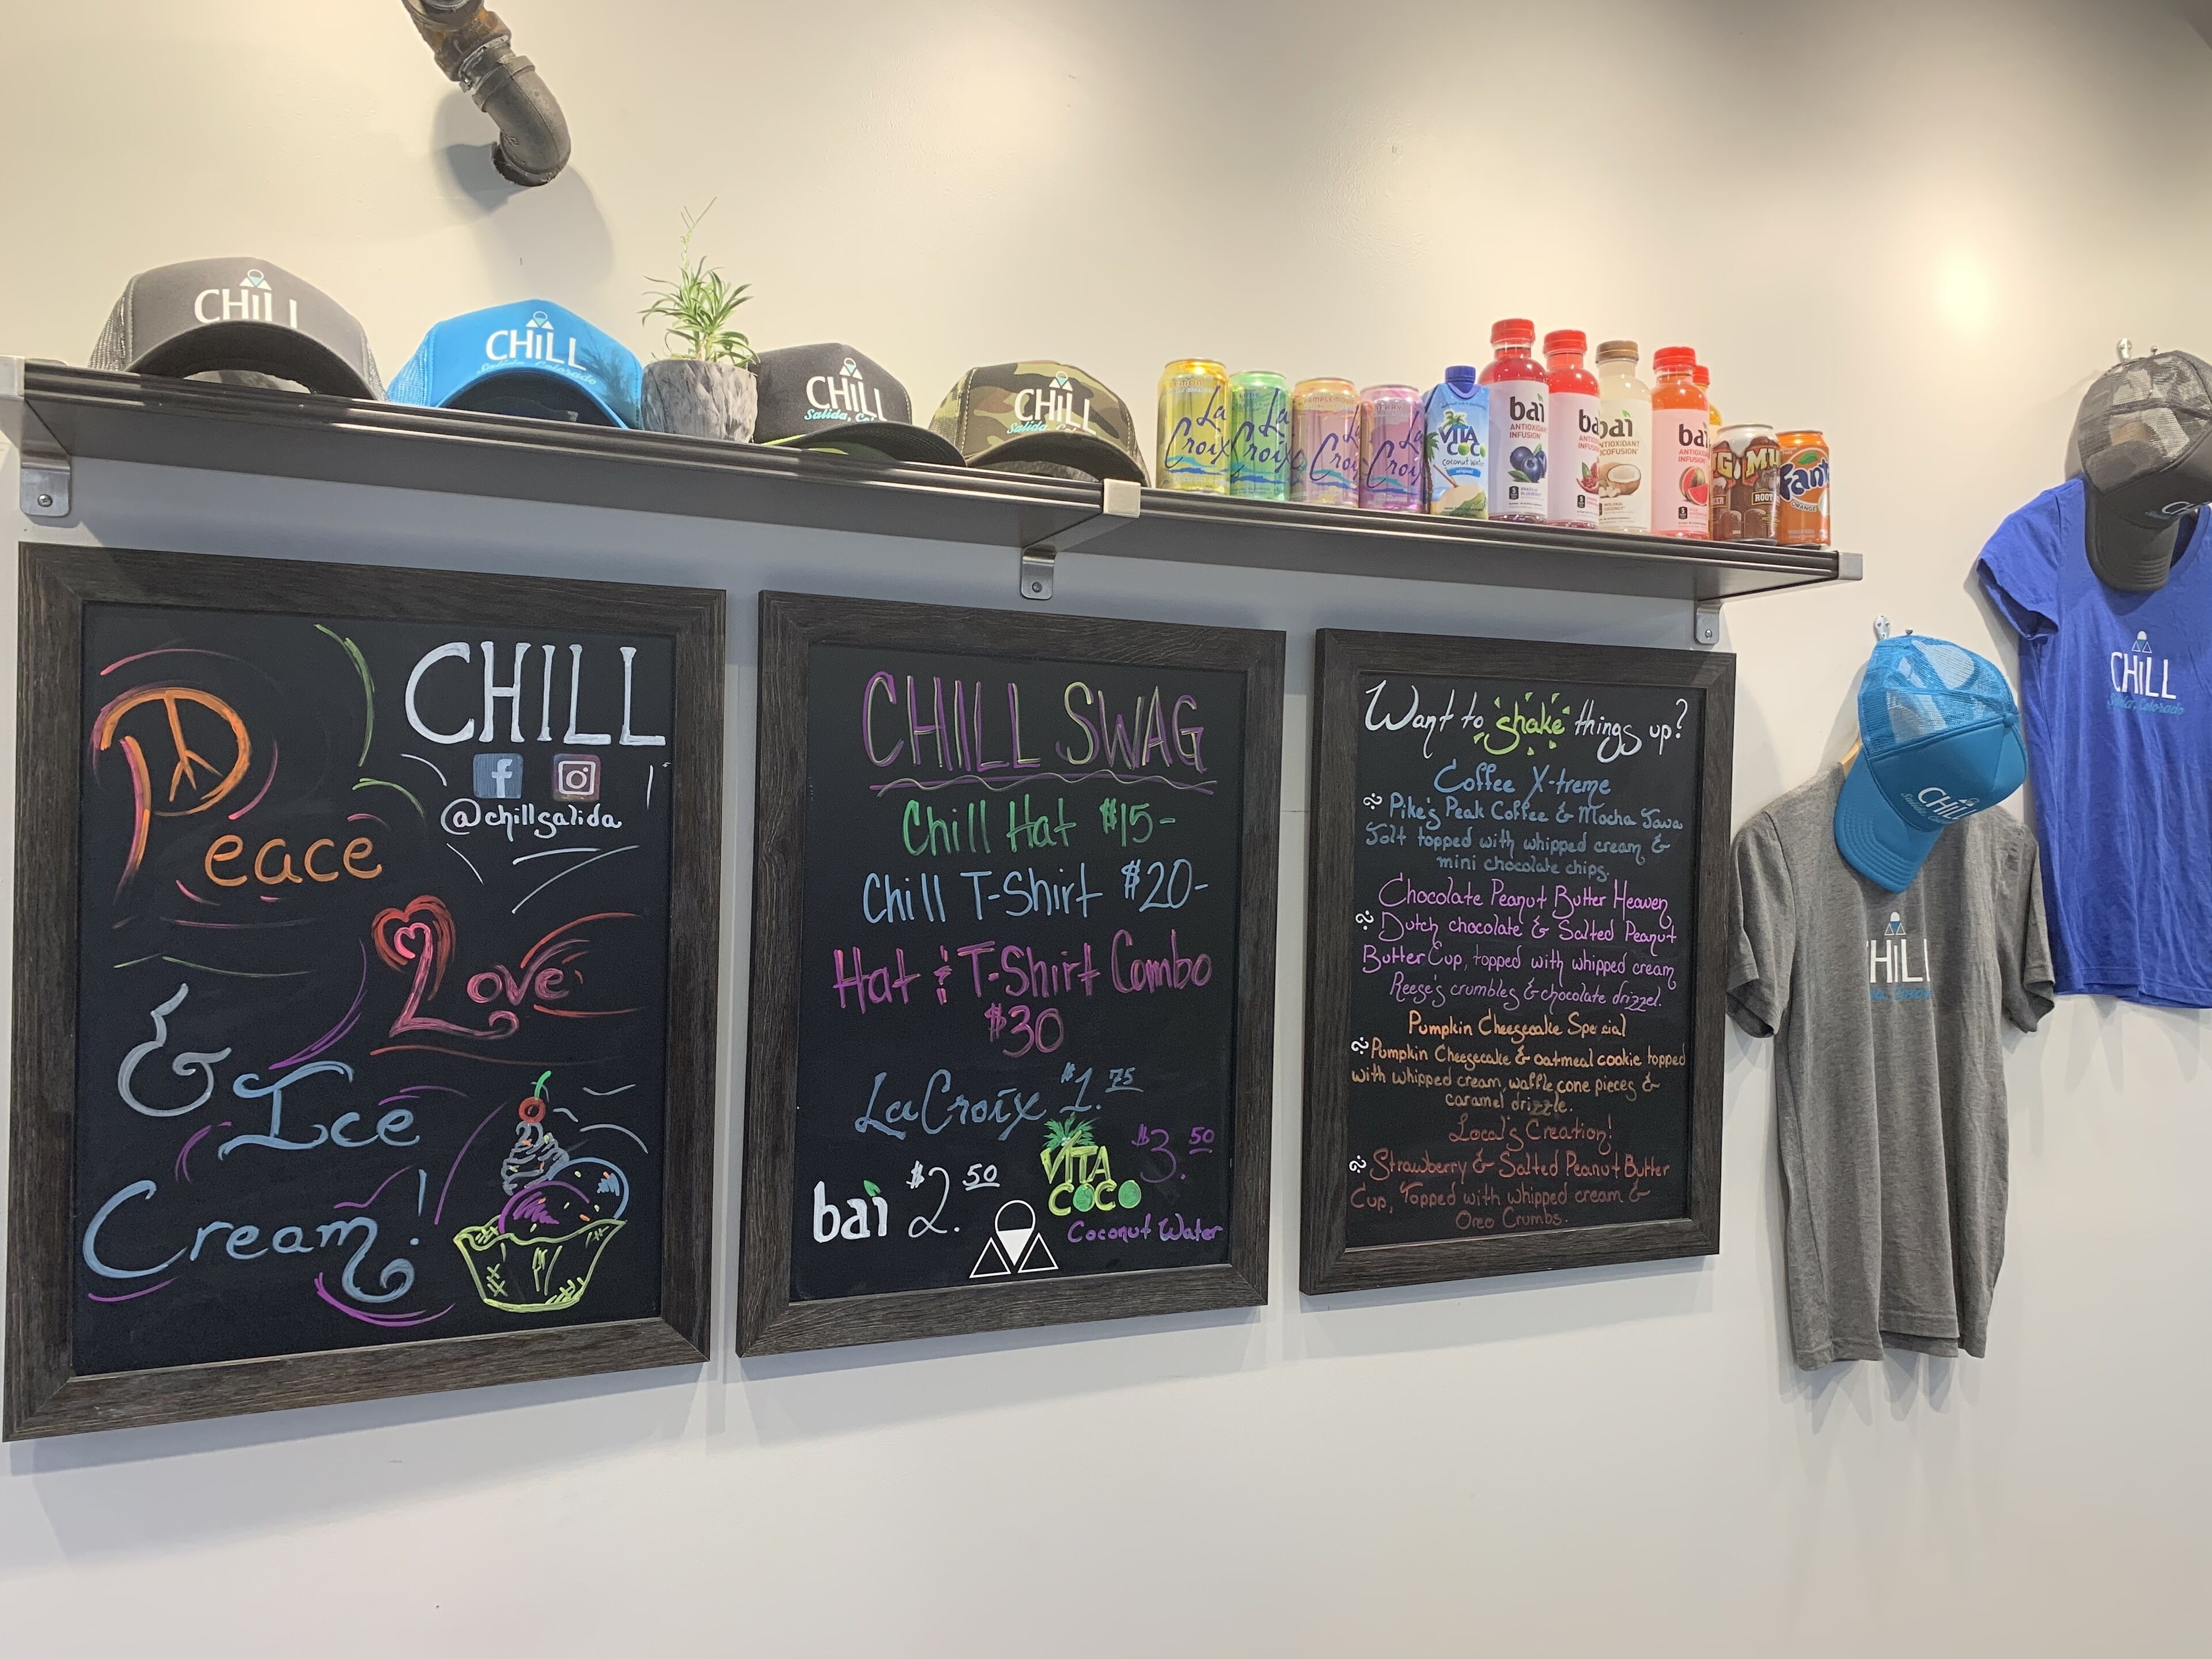 CHiLL
CHiLL
Salida, Colorado
CHiLL
CHiLL
Salida
La
Croix
La
Croix
La
Croix
La
Croix
VITA
COCO
Coconut Water
bai
ANTIOXIDANT
INFUSION
bai
bai
ANTIOXIDANT
COCOFUSION
bai
ANTIOXIDANT
INFUSION
MUG
ROOT
Fanta
ORANGE
CHILL
@chillsalida
Peace
Love
&
Ice
Cream!
CHILL SWAG
Chill Hat $15-
Chill T-Shirt $20-
Hat & T-Shirt Combo
$30
LaCroix $1.75
bai $2.50
VITA
COCO
$3.50
Coconut Water
Want to shake things up?
Coffee X-treme
Pike's Peak Coffee & Mocha Java
Jolt topped with whipped cream &
mini chocolate chips.
Chocolate Peanut Butter Heaven
Dutch chocolate & Salted Peanut
Butter Cup, topped with whipped cream
Reese's crumbles & chocolate drizzel.
Pumpkin Cheesecake Special
Pumpkin Cheesecake & oatmeal cookie topped
with whipped cream, waffle cone pieces &
caramel drizzle.
Local's Creation!
Strawberry & Salted Peanut Butter
Cup, Topped with whipped cream &
Oreo Crumbs.
CHiLL
CHiLL
CHiLL
Salida, Colorado